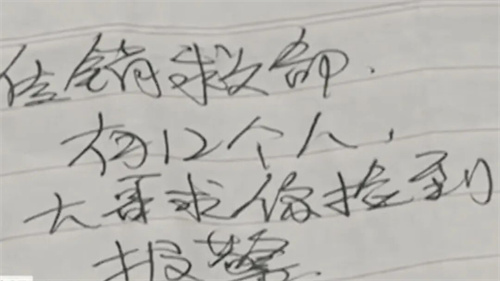 传销救命.
有12个人,
大哥求你捡到
报警.